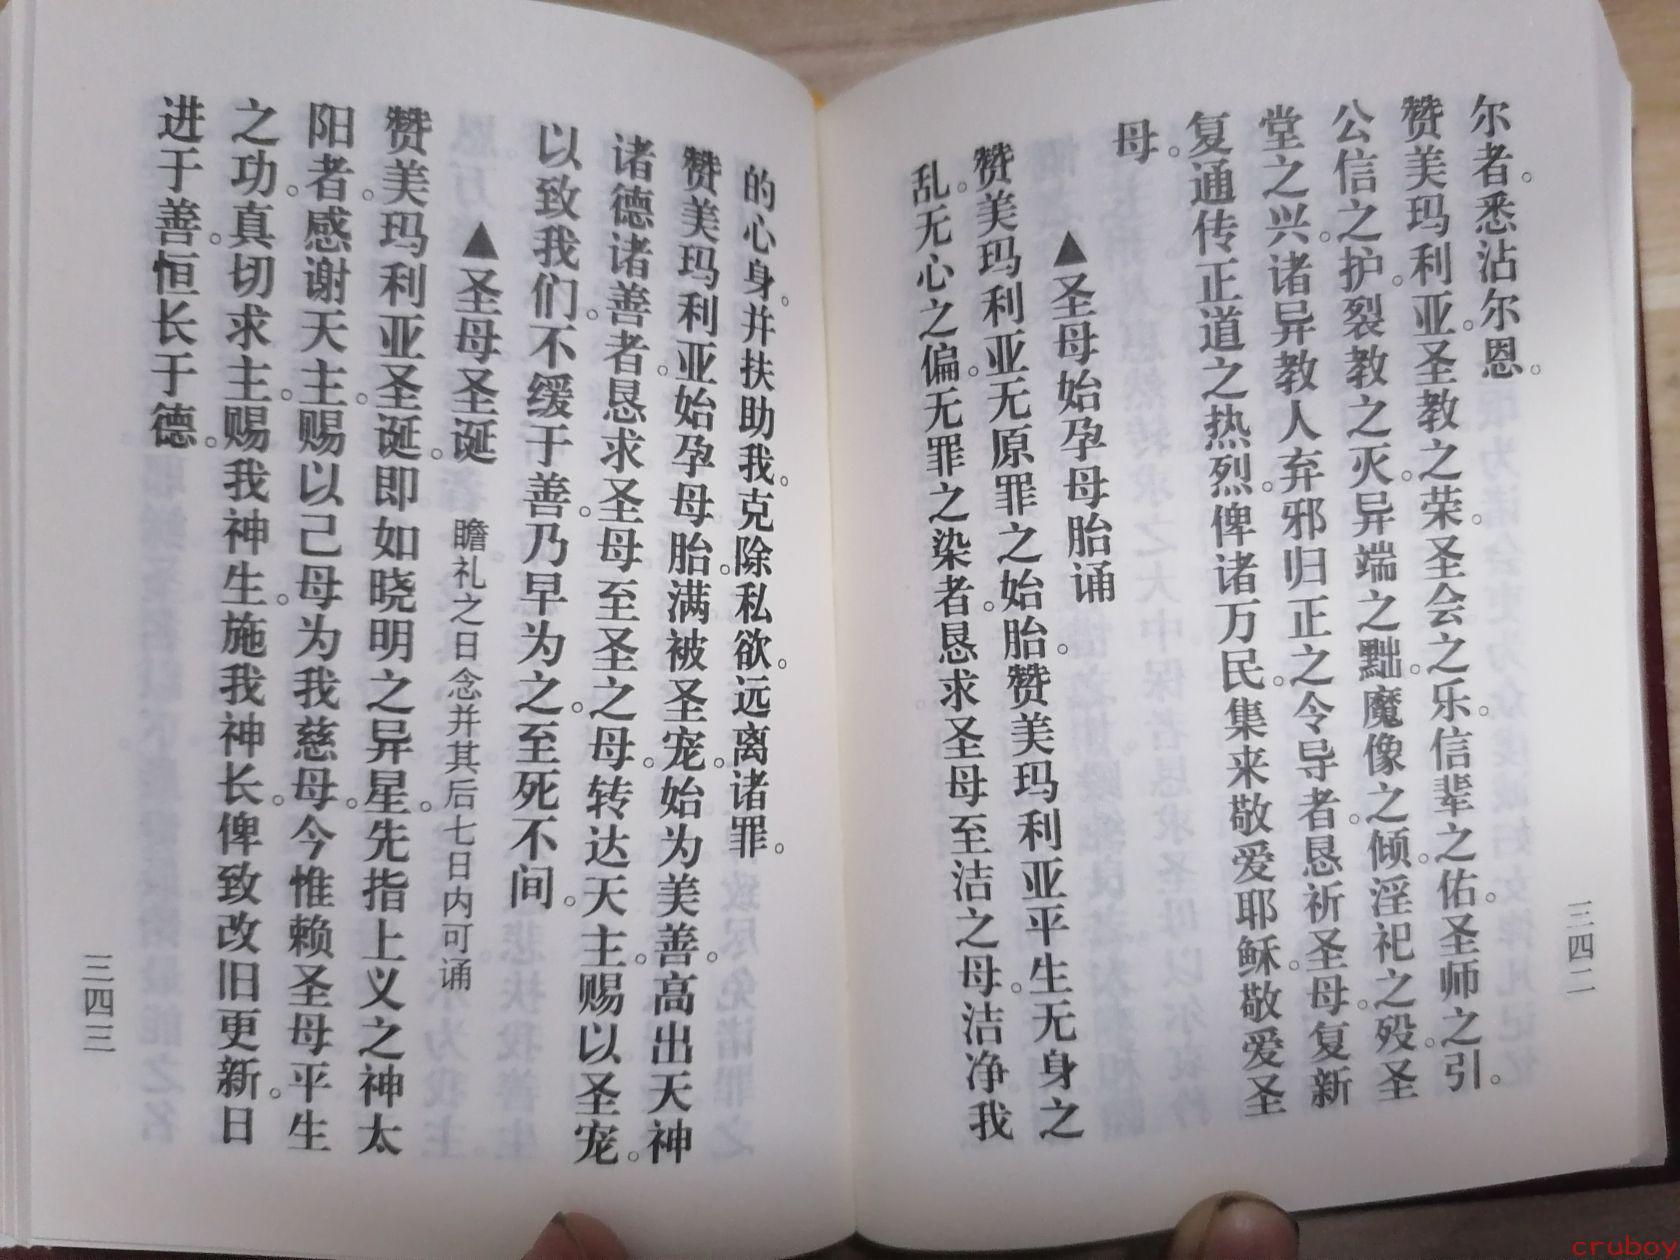 尔者。悉沾尔恩。
赞美玛利亚。圣教之荣。圣会之乐。信辈之佑。圣师之引。
公信之护。裂教之灭。异端之黜。魔像之倾。淫祀之殁。圣
堂之兴。诸异教人弃邪归正之令导者。恳祈圣母。复新
复通传正道之热烈。俾诸万民。集来敬爱耶稣。敬爱圣
母。
▲圣母始孕母胎诵
赞美玛利亚。无原罪之始胎。赞美玛利亚平生无身之
乱。无心之偏。无罪之染者。恳求圣母至洁之母。洁净我
三四二
的心身。并扶助我。克除私欲。远离诸罪。
赞美玛利亚。始孕母胎。满被圣宠。始为美善。高出天神
诸德诸善者。恳求圣母至圣之母。转达天主。赐以圣宠。
以致我们。不缓于善。乃早为之。至死不间。
▲圣母圣诞 瞻礼之日念并其后七日内可诵
赞美玛利亚圣诞。即如晓明之异星。先指上义之神太
阳者。感谢天主。赐以己母为我慈母。今惟赖圣母平生
之功。真切求主。赐我神生。施我神长。俾致改旧更新。日
进于善。恒长于德。
三四三
cruboy